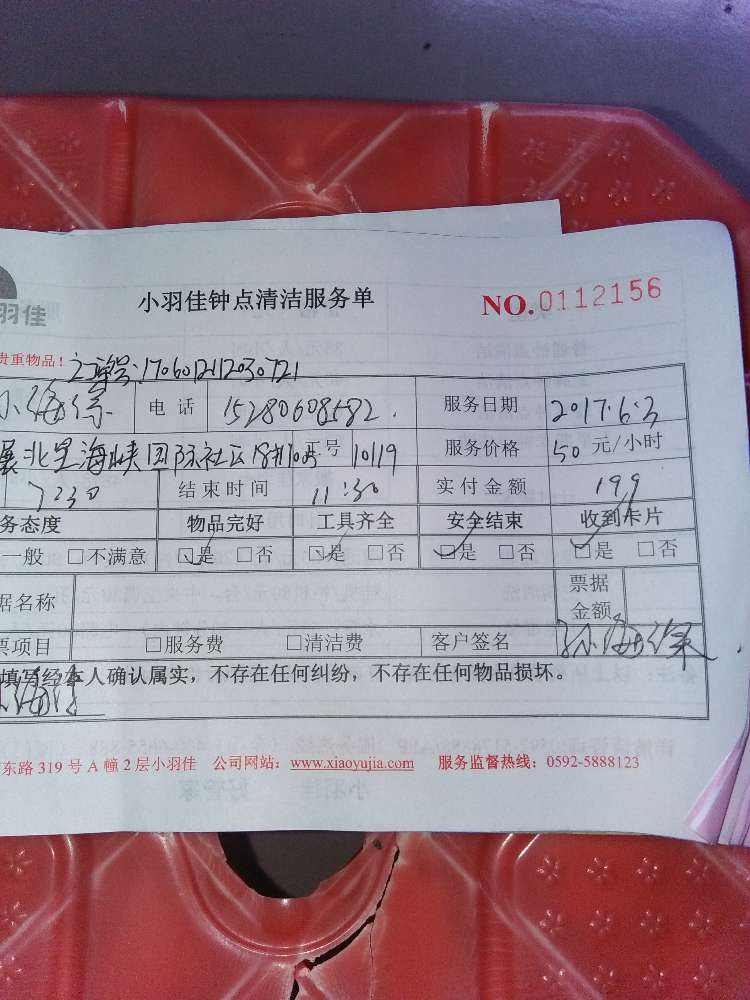 小羽佳钟点清洁服务单
NO.0112156
羽佳
贵重物品！订单号:170601211230721
海 电话 15280608582. 服务日期 2017.6.3
展北星海峡国际社区 工号 10119 服务价格 50元/小时
7:30 结束时间 11:30 实付金额 199
务态度 物品完好 工具齐全 安全结束 收到卡片
一般 □不满意 ☑是 □否 ☑是 □否 ☑是 □否 ☑是 □否
据名称 票据金额
票项目 □服务费 □清洁费 客户签名 孙海
填写经本人确认属实，不存在任何纠纷，不存在任何物品损坏。
东路319号A幢2层小羽佳 公司网站：www.xiaoyujia.com 服务监督热线：0592-5888123